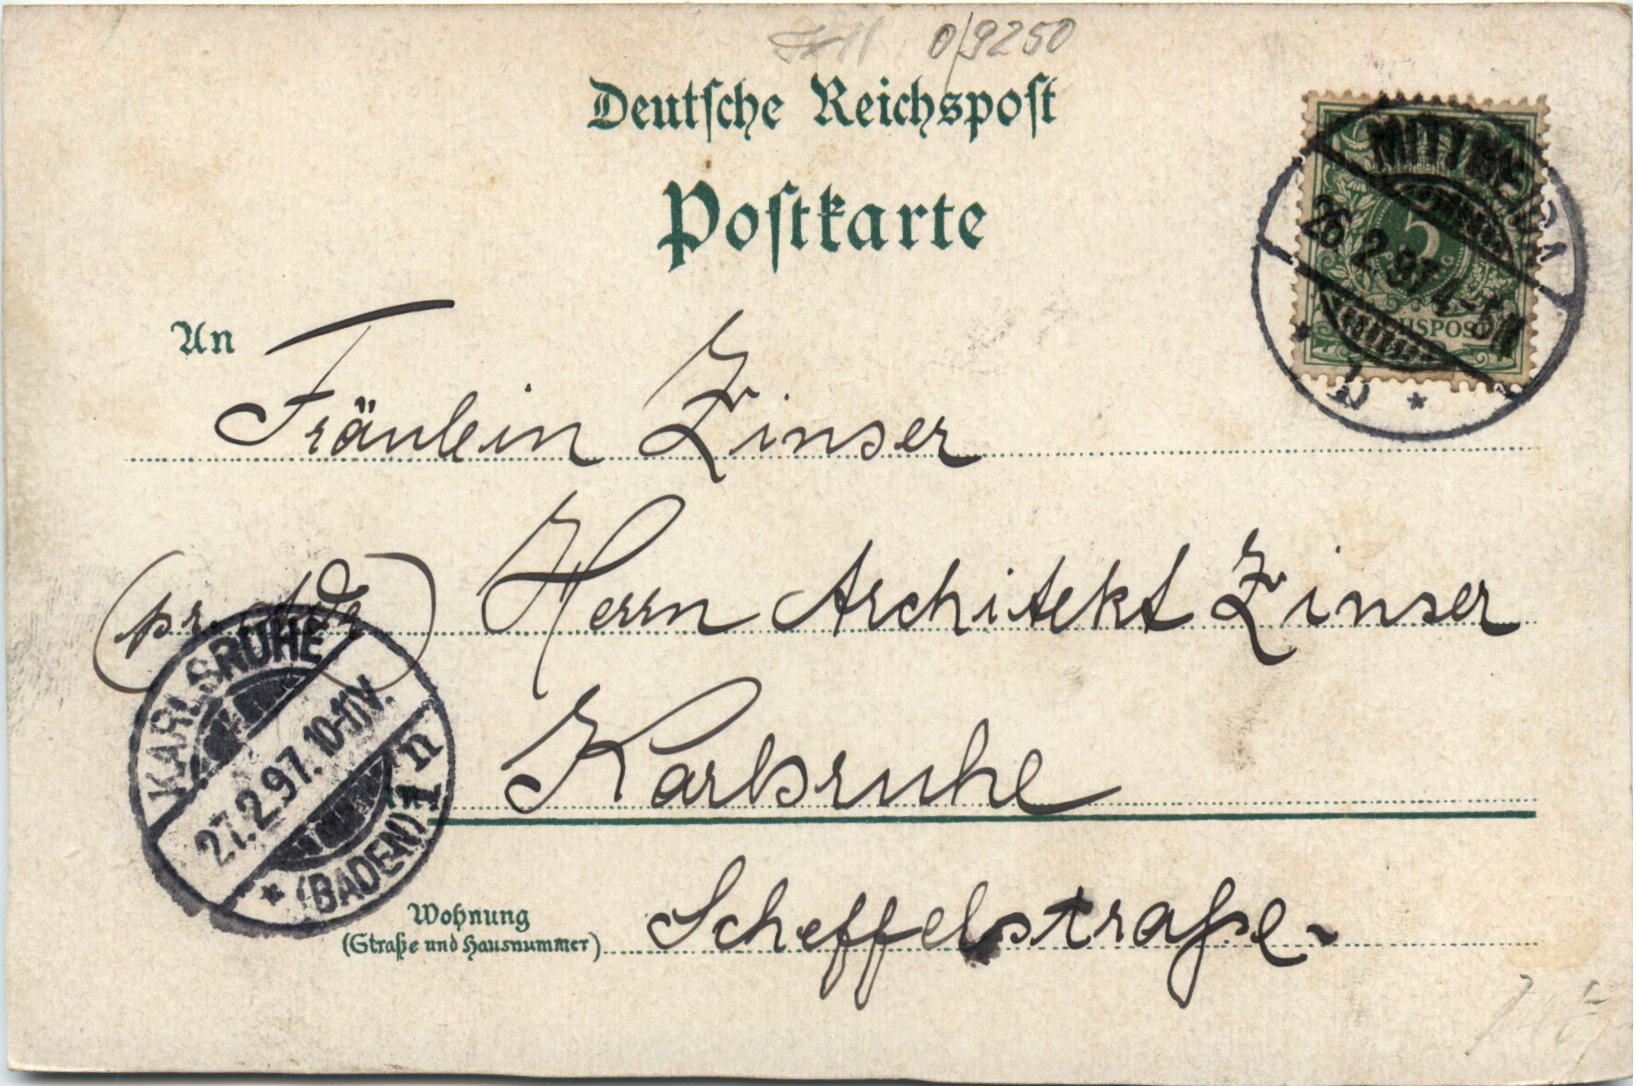 0/9250
Deutsche Reichspost
Postkarte
MITTWEIDA
26.2.97 4-5N
* b *
5
REICHSPOST
An
Fräulein Zinser
(pr. Adr.) Herrn Architekt Zinser
in Karlsruhe
KARLSRUHE
27.2.97. 10-11V.
* (BADEN) 1 n
Wohnung
(Straße und Hausnummer) Scheffelstraße